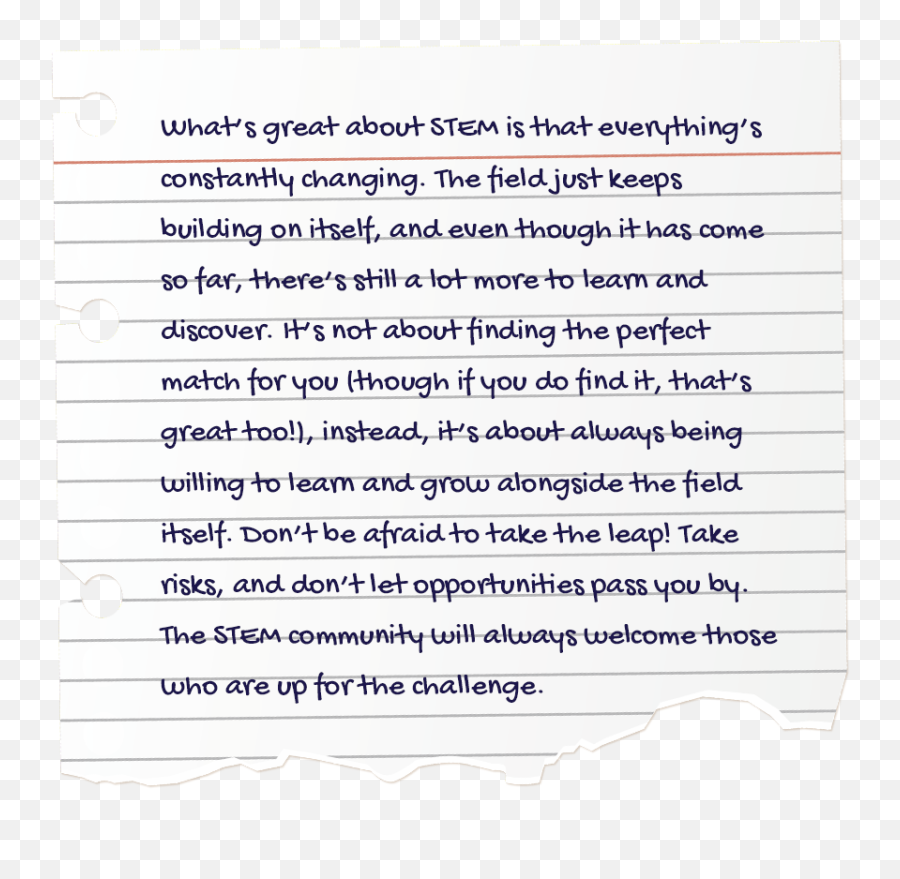 What's great about STEM is that everything's
constantly changing. The field just keeps
building on itself, and even though it has come
so far, there's still a lot more to learn and
discover. It's not about finding the perfect
match for you (though if you do find it, that's
great too!), instead, it's about always being
willing to learn and grow alongside the field
itself. Don't be afraid to take the leap! Take
risks, and don't let opportunities pass you by.
The STEM community will always welcome those
who are up for the challenge.